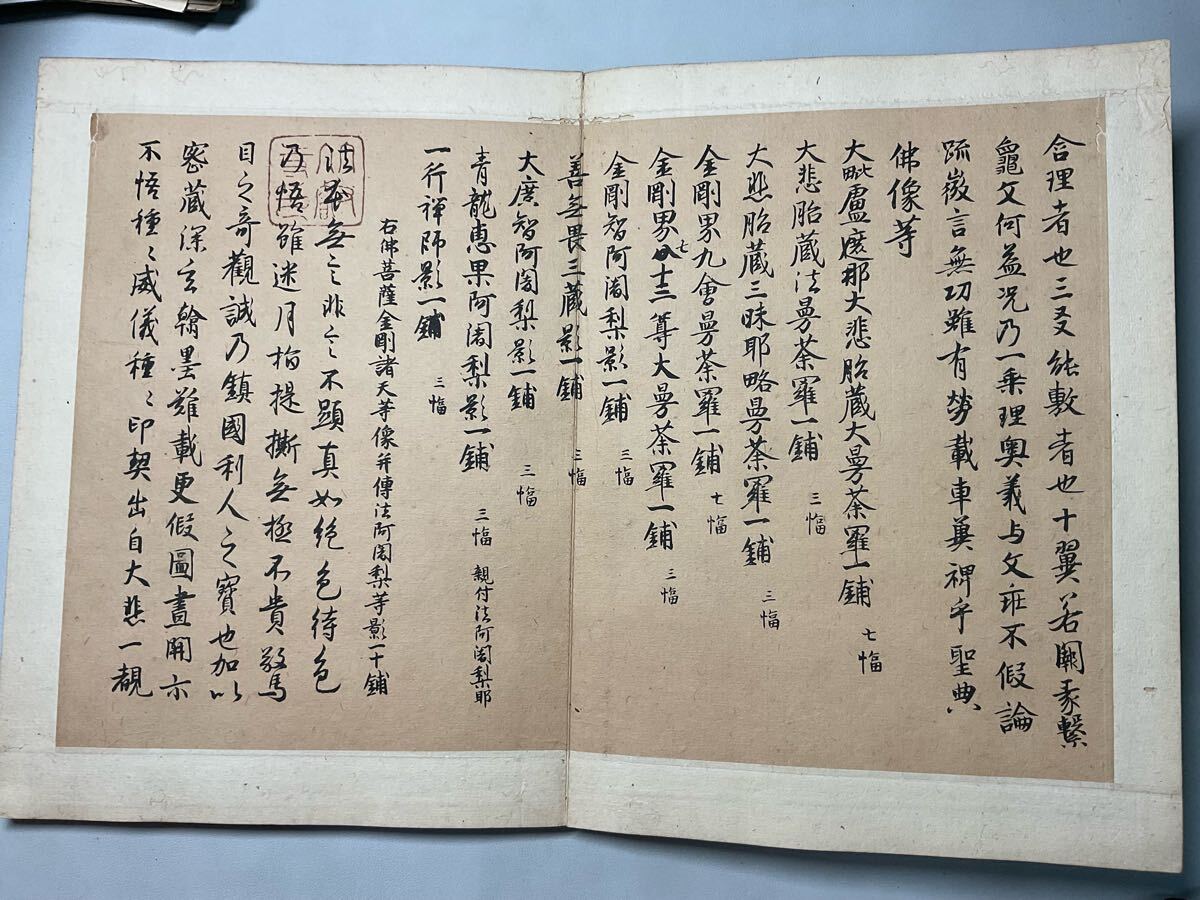 含理者也三爻能敷者也十翼若闕彖繋
龜文何益况乃一乗理奥義与文乖不假論
疏微言無功雖有勞載車冀裨乎聖典
佛像等
大毗盧遮那大悲胎蔵大曼荼羅一鋪 七幅
大悲胎蔵法曼荼羅一鋪 三幅
大悲胎蔵三昧耶略曼荼羅一鋪 三幅
金剛界九會曼荼羅一鋪 七幅
金剛界七十三尊大曼荼羅一鋪 三幅
金剛智阿闍梨影一鋪 三幅
善無畏三蔵影一鋪 三幅
大廣智阿闍梨影一鋪 三幅
青龍惠果阿闍梨影一鋪 三幅 親付法阿闍梨耶
一行禅師影一鋪 三幅
右佛菩薩金剛諸天等像并傳法阿闍梨等影一十鋪
法本無言非言不顯真如絶色待色
乃悟雖迷月指提撕無極不貴驚
目之奇觀誠乃鎮國利人之寶也加以
密蔵深玄翰墨難載更假圖畫開示
不悟種々威儀種々印契出自大悲一覩